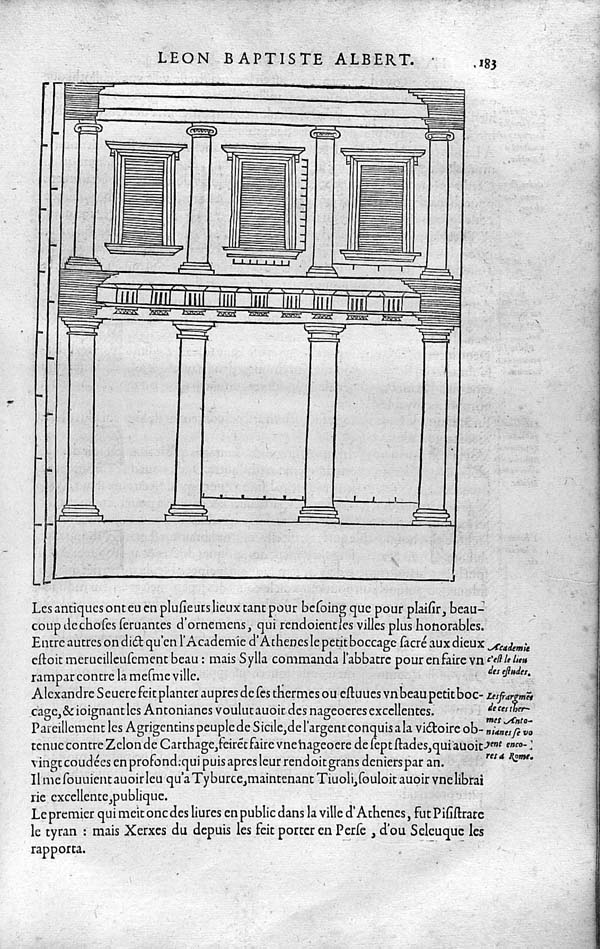 LEON BAPTISTE ALBERT.
183
Les antiques ont eu en pluſieurs lieux tant pour beſoing que pour plaiſir, beau-
coup de choſes ſeruantes d'ornemens, qui rendoient les villes plus honorables.
Entre autres on dict qu'en l'Academie d'Athenes le petit boccage ſacré aux dieux
eſtoit merueilleuſement beau : mais Sylla commanda l'abbatre pour en faire vn
rampar contre la meſme ville.
Alexandre Seuere feit planter aupres de ſes thermes ou eſtuues vn beau petit boc-
cage, & ioignant les Antonianes voulut auoir des nageoeres excellentes.
Pareillement les Agrigentins peuple de Sicile, de l'argent conquis a la victoire ob-
tenue contre Zelon de Carthage, feirēt faire vne nageoere de ſept ſtades, qui auoit
vingt coudées en profond: qui puis apres leur rendoit grans deniers par an.
Il me ſouuient auoir leu qu'a Tyburce, maintenant Tiuoli, ſouloit auoir vne librai
rie excellente, publique.
Le premier qui meit onc des liures en public dans la ville d'Athenes, fut Piſiſtrate
le tyran : mais Xerxes du depuis les feit porter en Perſe , d'ou Seleuque les
rapporta.
Academie
c'eſt le lieu
des eſtudes.
Les fragmēs
de ces ther-
mes Anto-
nianes ſe vo
yent enco-
res a Rome.